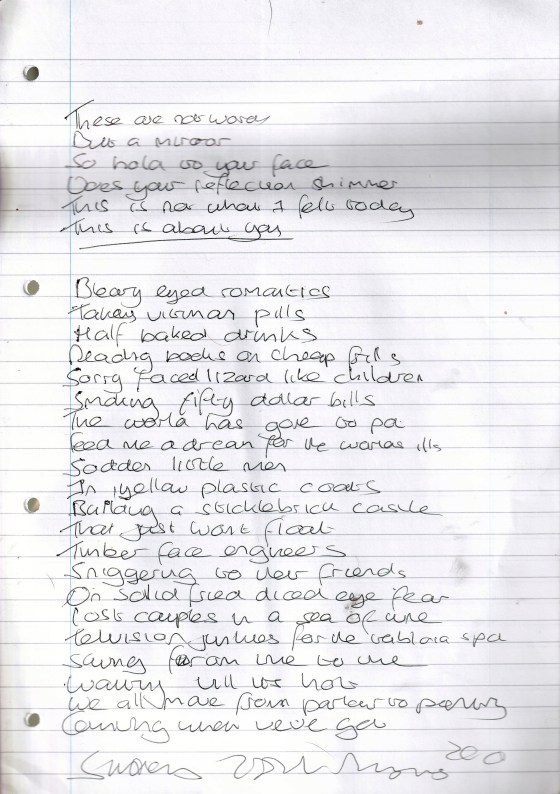 These are not words
But a mirror
So hold to your face
Does your reflection shimmer
This is not what I felt today
This is about you
Bleary eyed romantics
Taking vitman pills
Half baked drinks
Reading books on cheap frills
Sorry faced lizard like children
Smoking fifty dollar bills
The world has gone to pot
Feed me a dream for the worlds ills
Sodden little men
In yellow plastic coats
Building a sticklebrick castle
That just wont float
Timber face engineers
Sniggering to their friends
On solid fried diced eye fear
Lost couples in a sea of
Television junkies for the tabloid
from to
till its
We all move from parlour to
Coming when weve got